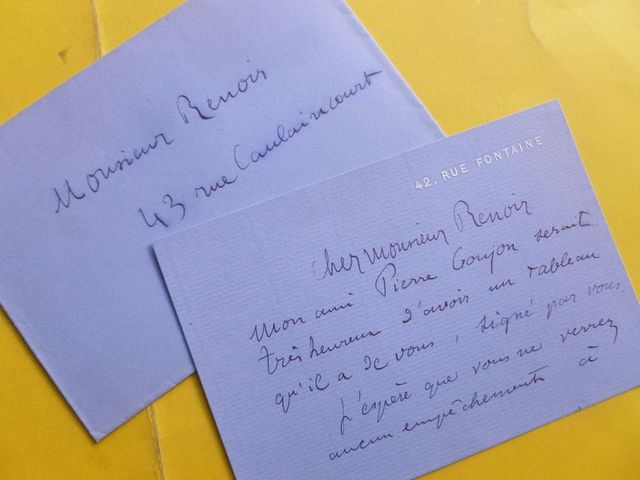 Monsieur Renoir
43 rue Caulaincourt
42, RUE FONTAINE
cher Monsieur Renoir
Mon ami Pierre Goujon serait
très heureux d'avoir un tableau
qu'il a de vous, signé par vous.
J'espère que vous ne verrez
aucun empêchements à